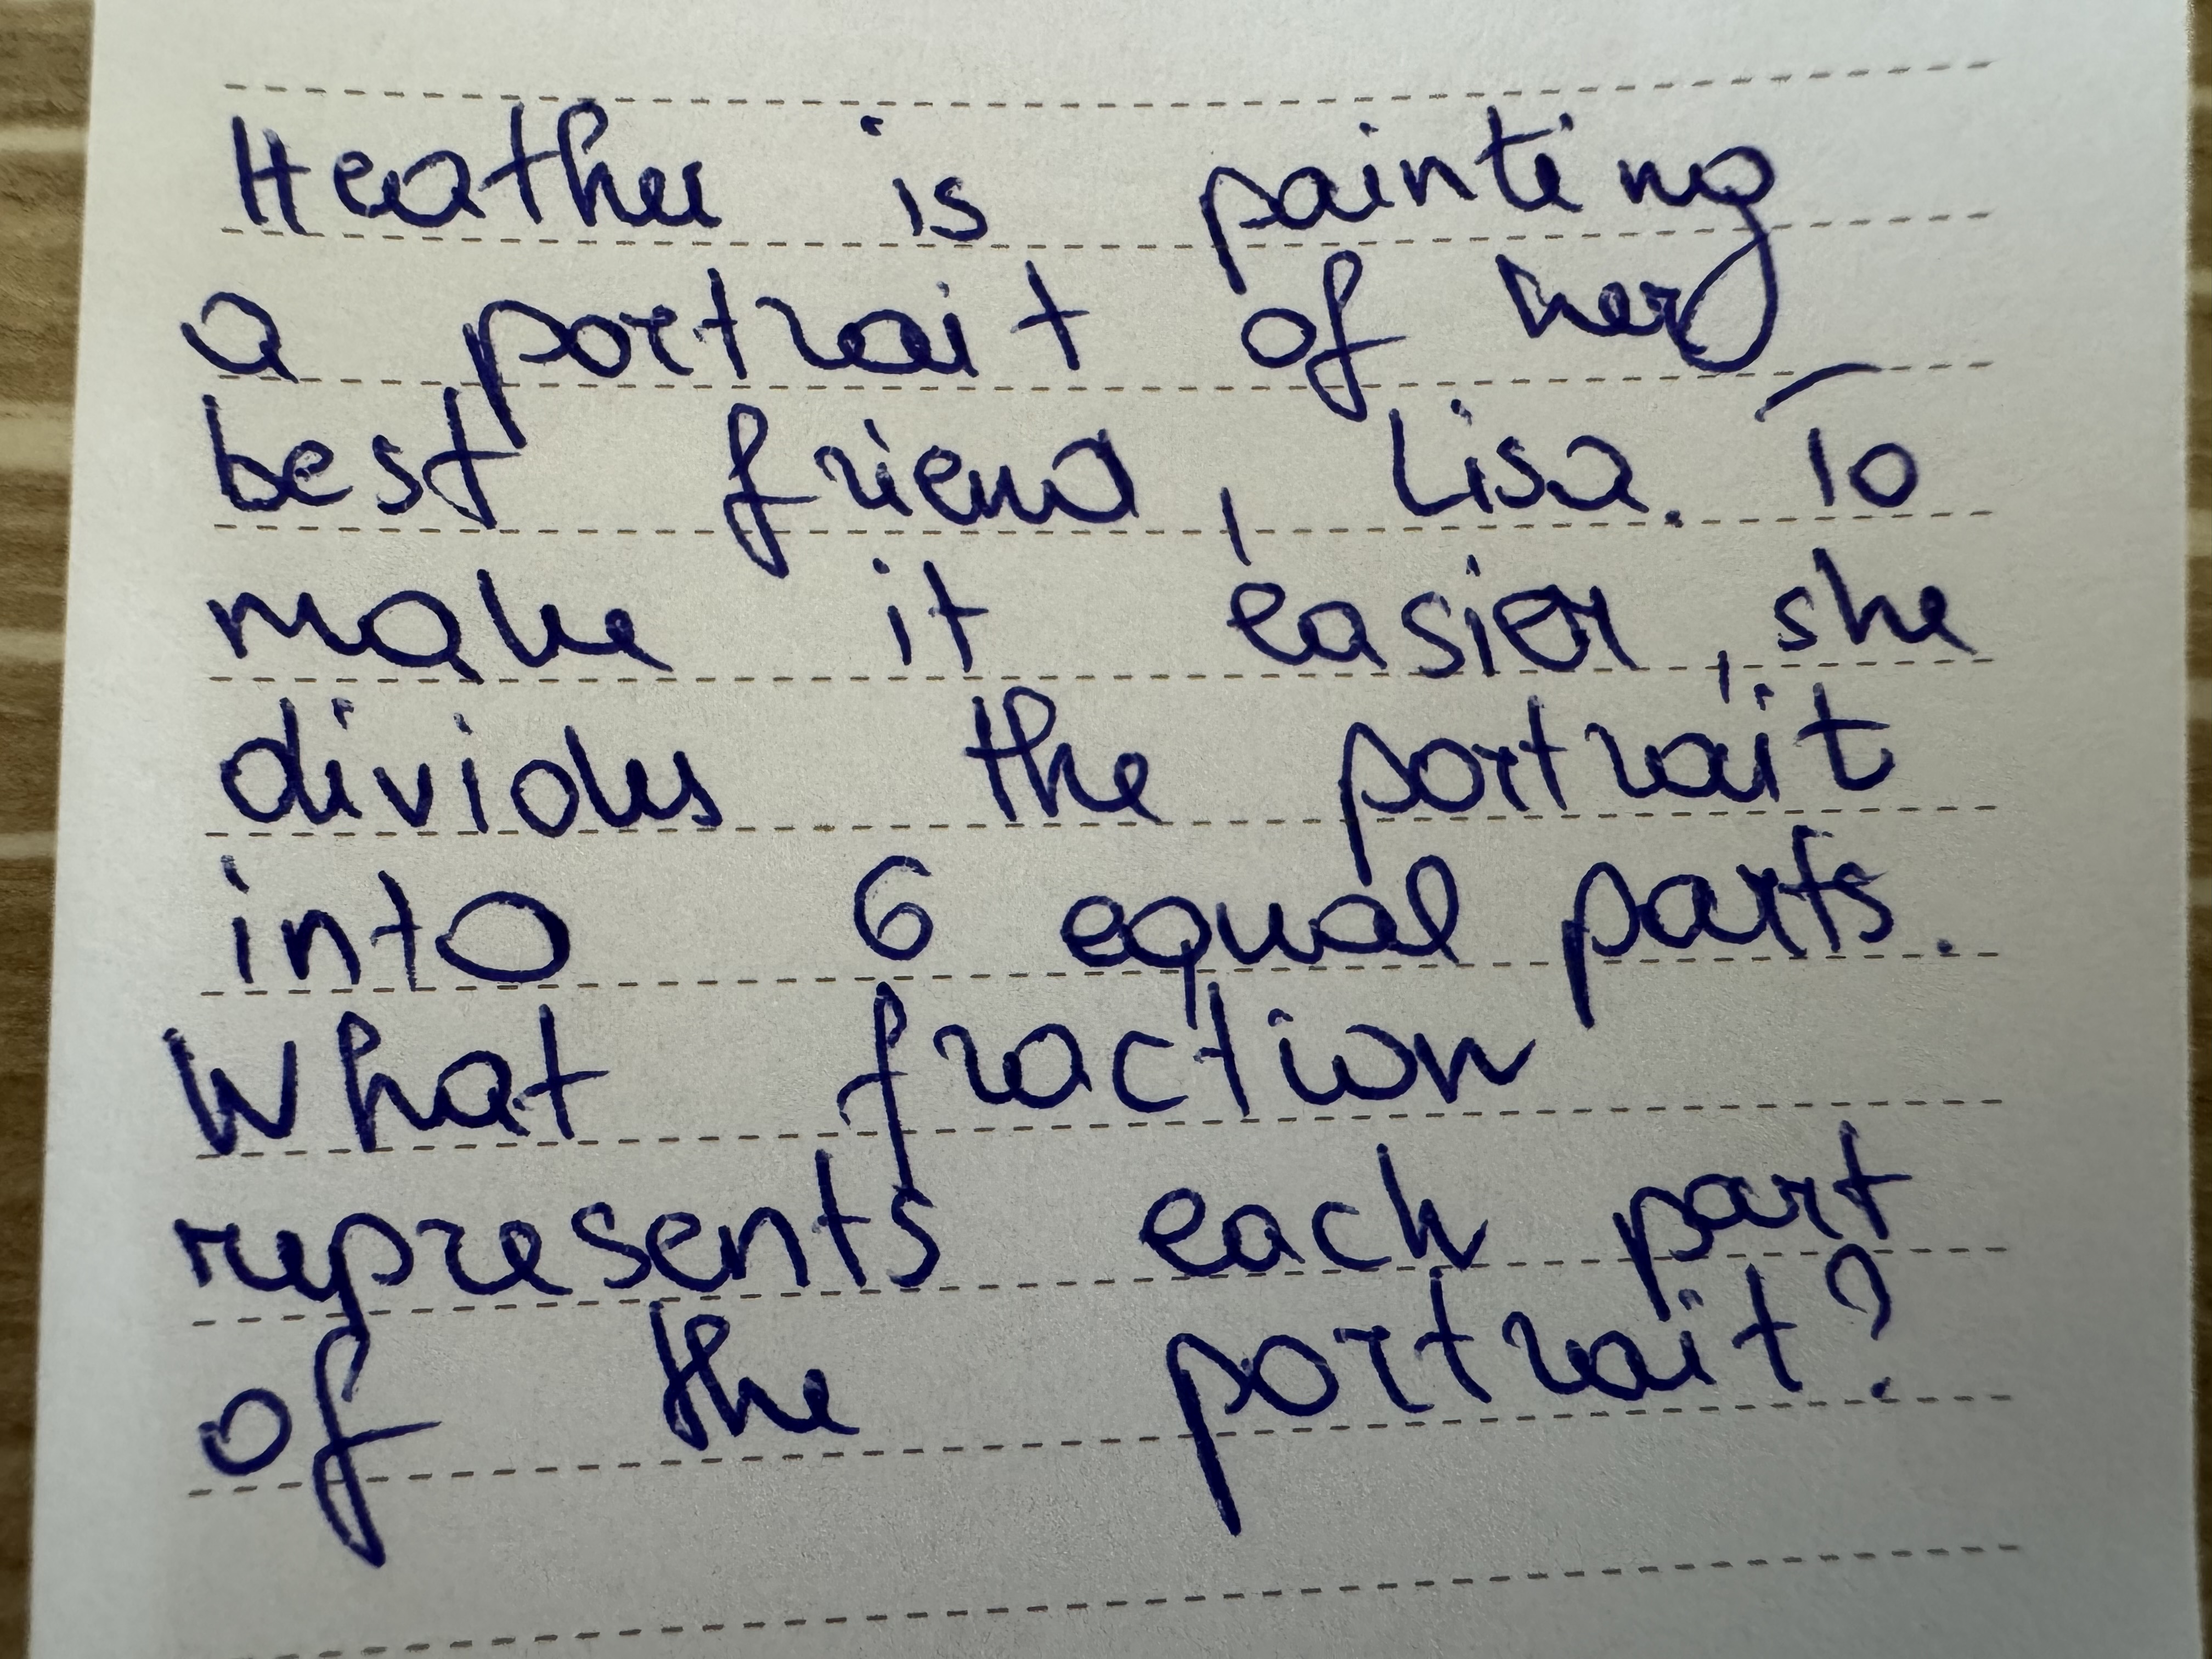 Heather is painting
a portrait of her
best friend, Lisa. To
make it easier, she
divides the portrait
into 6 equal parts.
What fraction
represents each part
of the portrait?